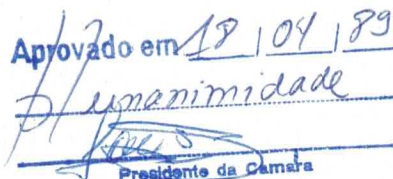 Aprovado em 18 | 04 | 89
p/ unanimidade
Presidente da Camara